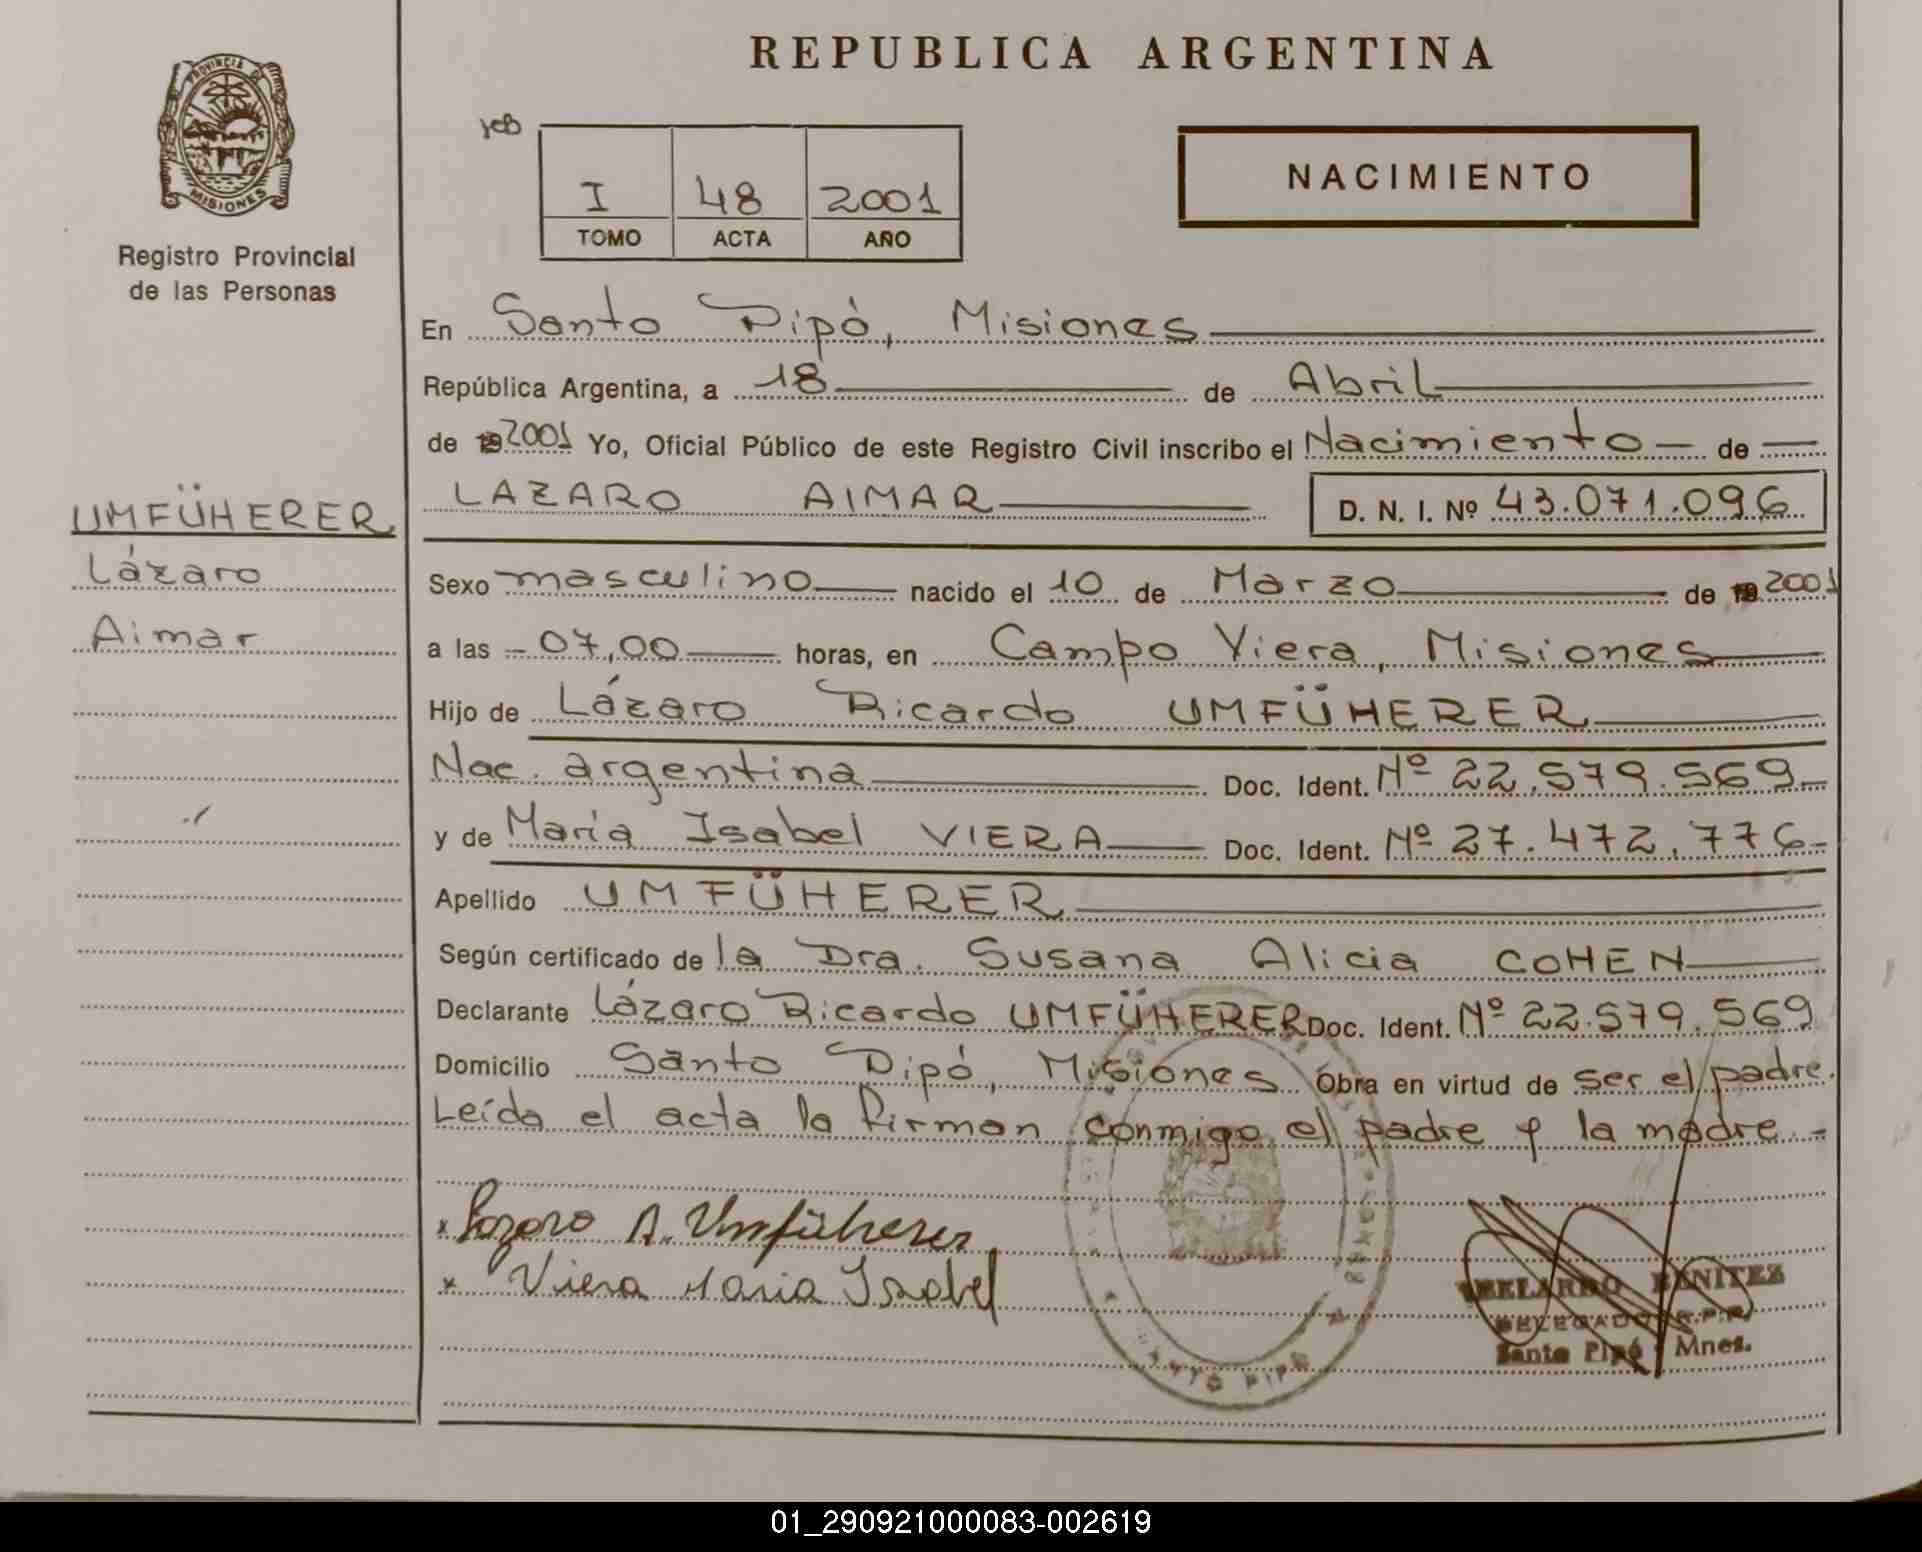 REPUBLICA ARGENTINA
PROVINCIA DE
MISIONES
Registro Provincial
de las Personas
I 48 2001
TOMO ACTA AÑO
NACIMIENTO
En Santo Pipó, Misiones
República Argentina, a 18 de Abril
de 19 2001 Yo, Oficial Público de este Registro Civil inscribo el Nacimiento de
LAZARO AIMAR D. N. I. Nº 43.071.096
UMFÜHERER
Lázaro
Aimar
Sexo masculino nacido el 10 de Marzo de 19 2001
a las 07,00 horas, en Campo Viera, Misiones
Hijo de Lázaro Ricardo UMFÜHERER
Nac. argentina Doc. Ident. Nº 22.579.569
y de Maria Isabel VIERA Doc. Ident. Nº 27.472.776
Apellido UMFÜHERER
Según certificado de la Dra. Susana Alicia COHEN
Declarante Lázaro Ricardo UMFÜHERER Doc. Ident. Nº 22.579.569
Domicilio Santo Pipó, Misiones Obra en virtud de ser el padre.
Leída el acta la firman conmigo el padre y la madre.-
x Lazaro R. Umfüherer
x Viera Maria Isabel
ABELARDO BENITEZ
DELEGADO R.P.P.
Santo Pipó - Mnes.
SANTO PIPO
01_290921000083-002619